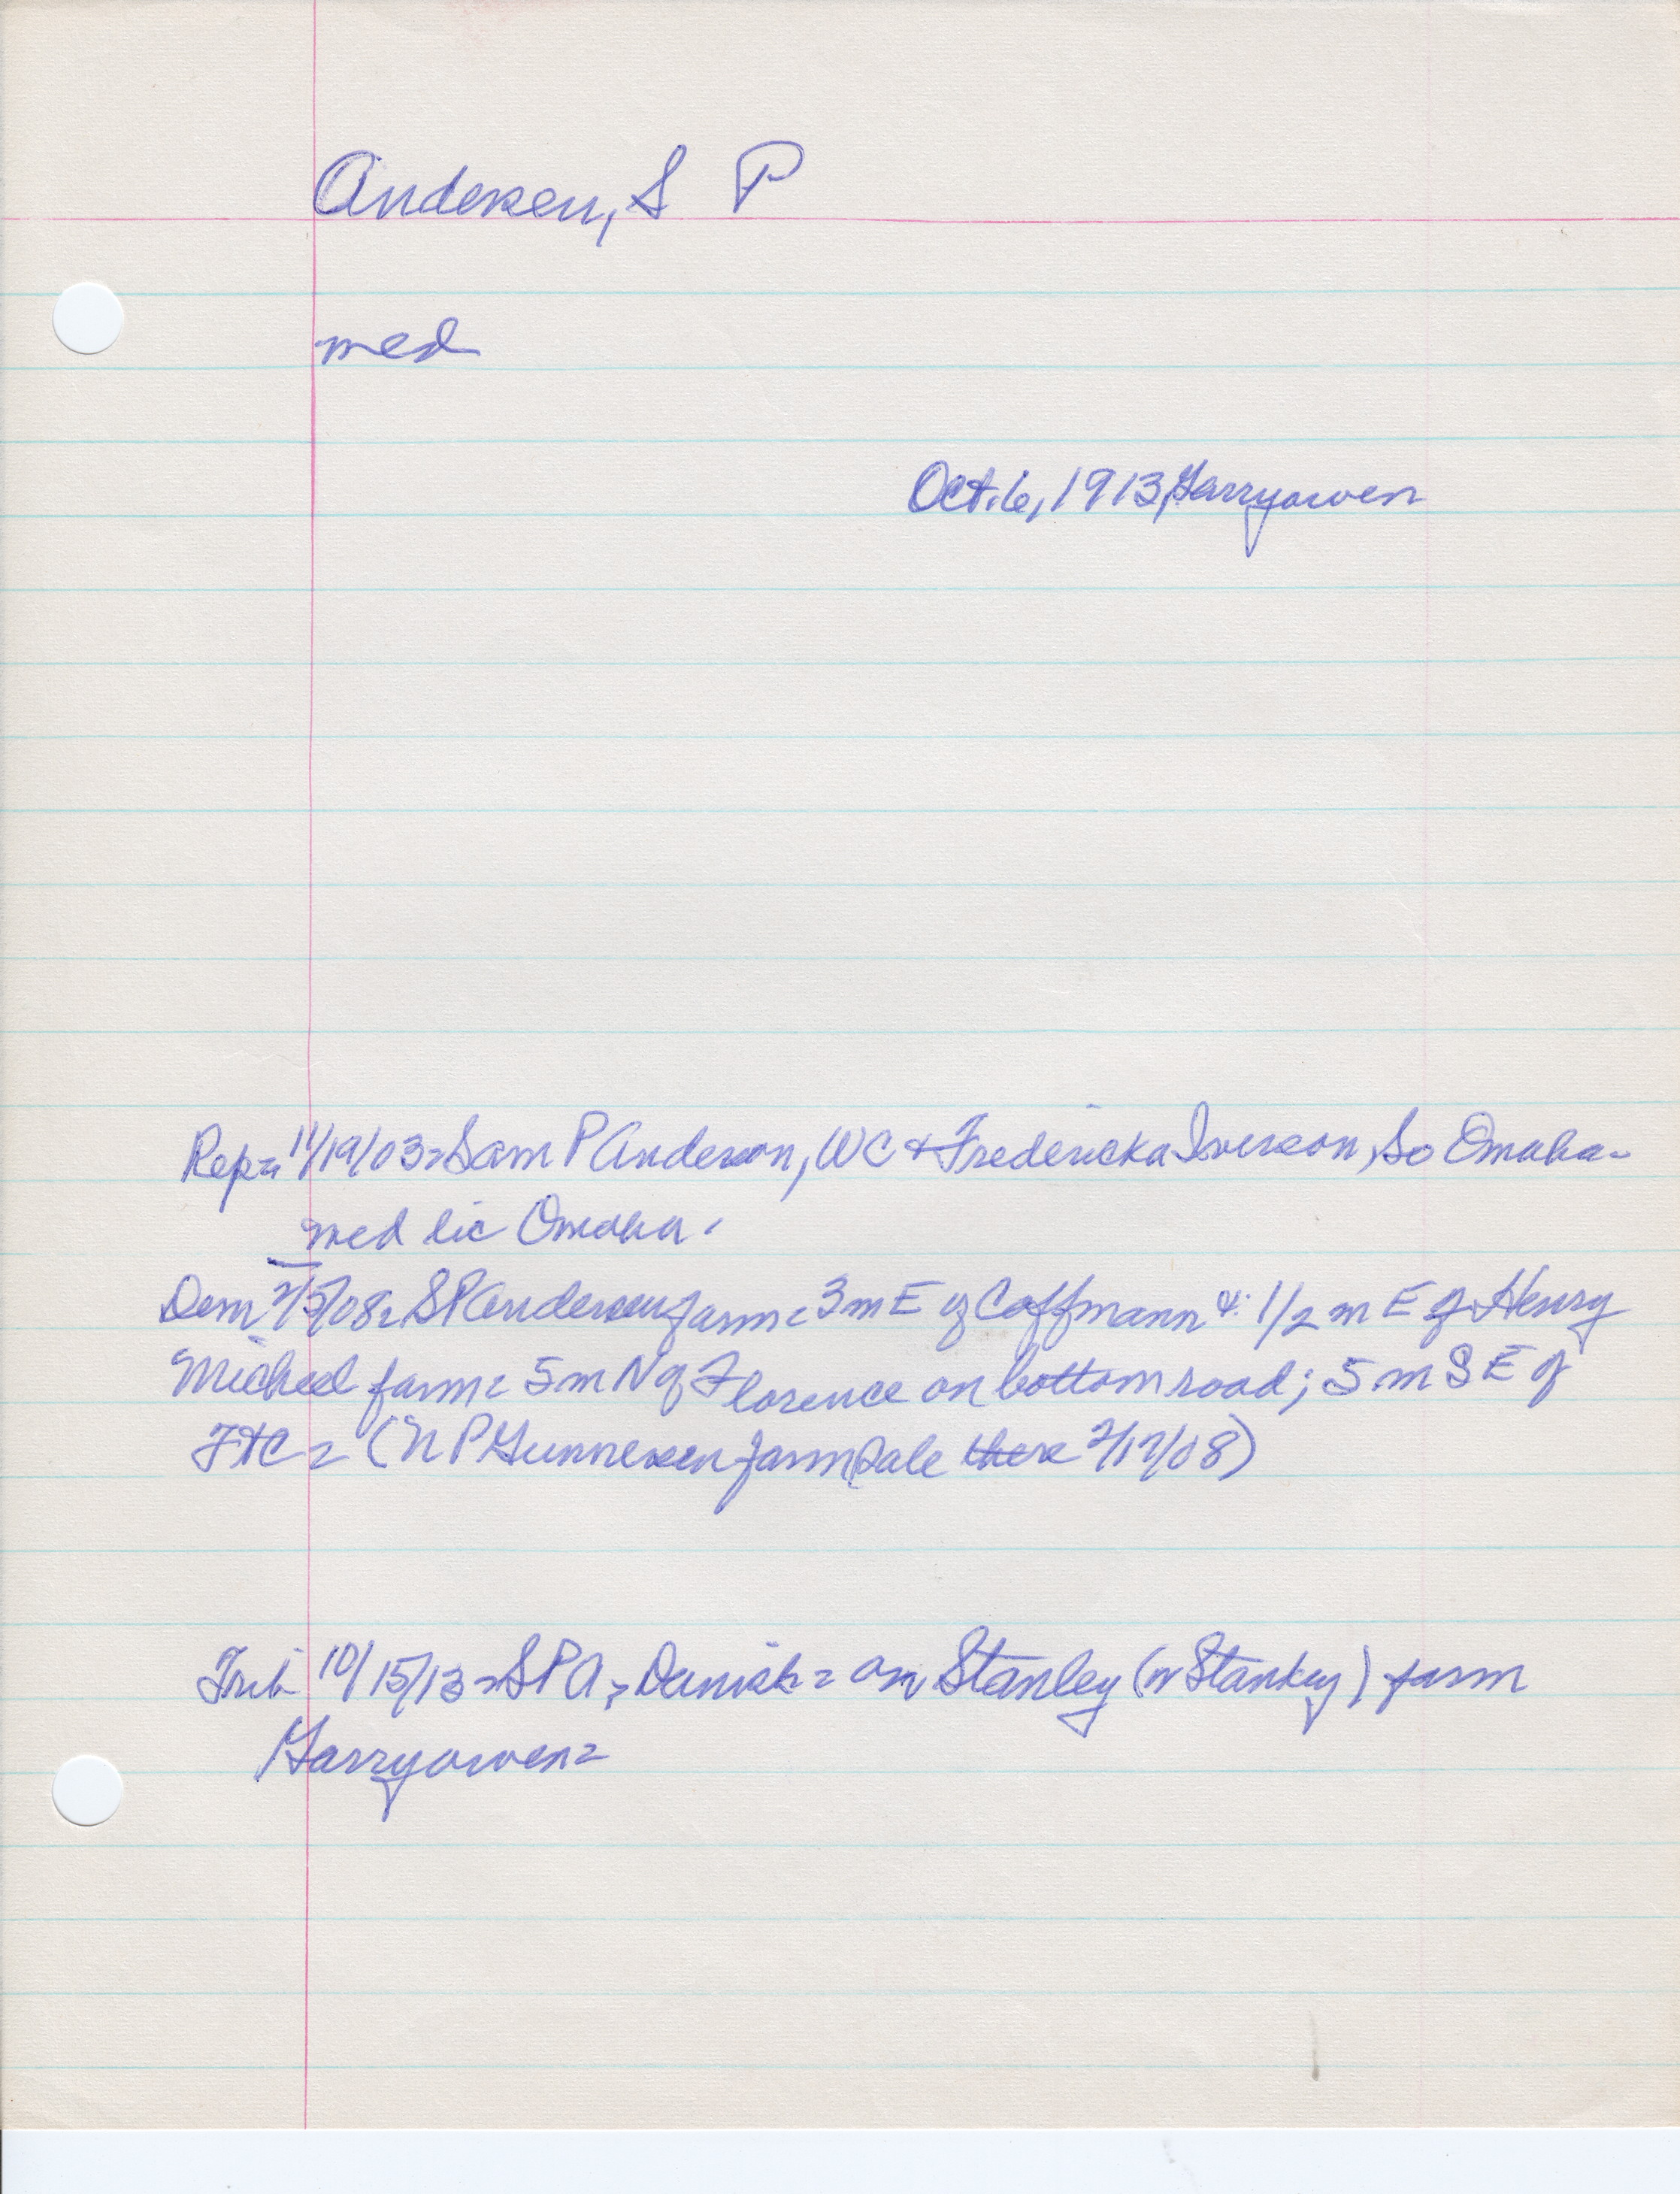 Andersen, S P
med
Oct. 6, 1913, Garryowen
Rep= 11/19/03= Sam P Anderson, WC & Fredericka Iverson, So Omaha-
med lic Omaha.
Dem 2/5/08= SP Andersen farm= 3 m E of Coffmann & 1/2 m E of Henry
Micheel farm= 5 m N of Florence on bottom road; 5 m S E of
FtC= (N P Gunnesen farm Sale there 2/17/08)
Trib 10/15/13= S P A, Danish= on Stanley (or Stankey) farm
Garryowen=